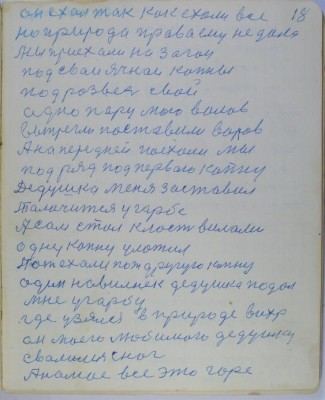 он ехал так как ехали все 18
но природа права ему не дала
мы приехали на загон
под свои ячной копны
под розвел свой
одно пару мою валов
поставили
А на передней поехали мы
под ряд под первою копну
Дедушка меня заставил
талачится у гарбе
А сам стал класть вилами
одну копну уложил
Потехали пот другую копну
один навилнек дедушка подол
мне у гарбу
где узялс в природе вихр
он моего любимого дедушку
свалил из ног
А на мае все это горе